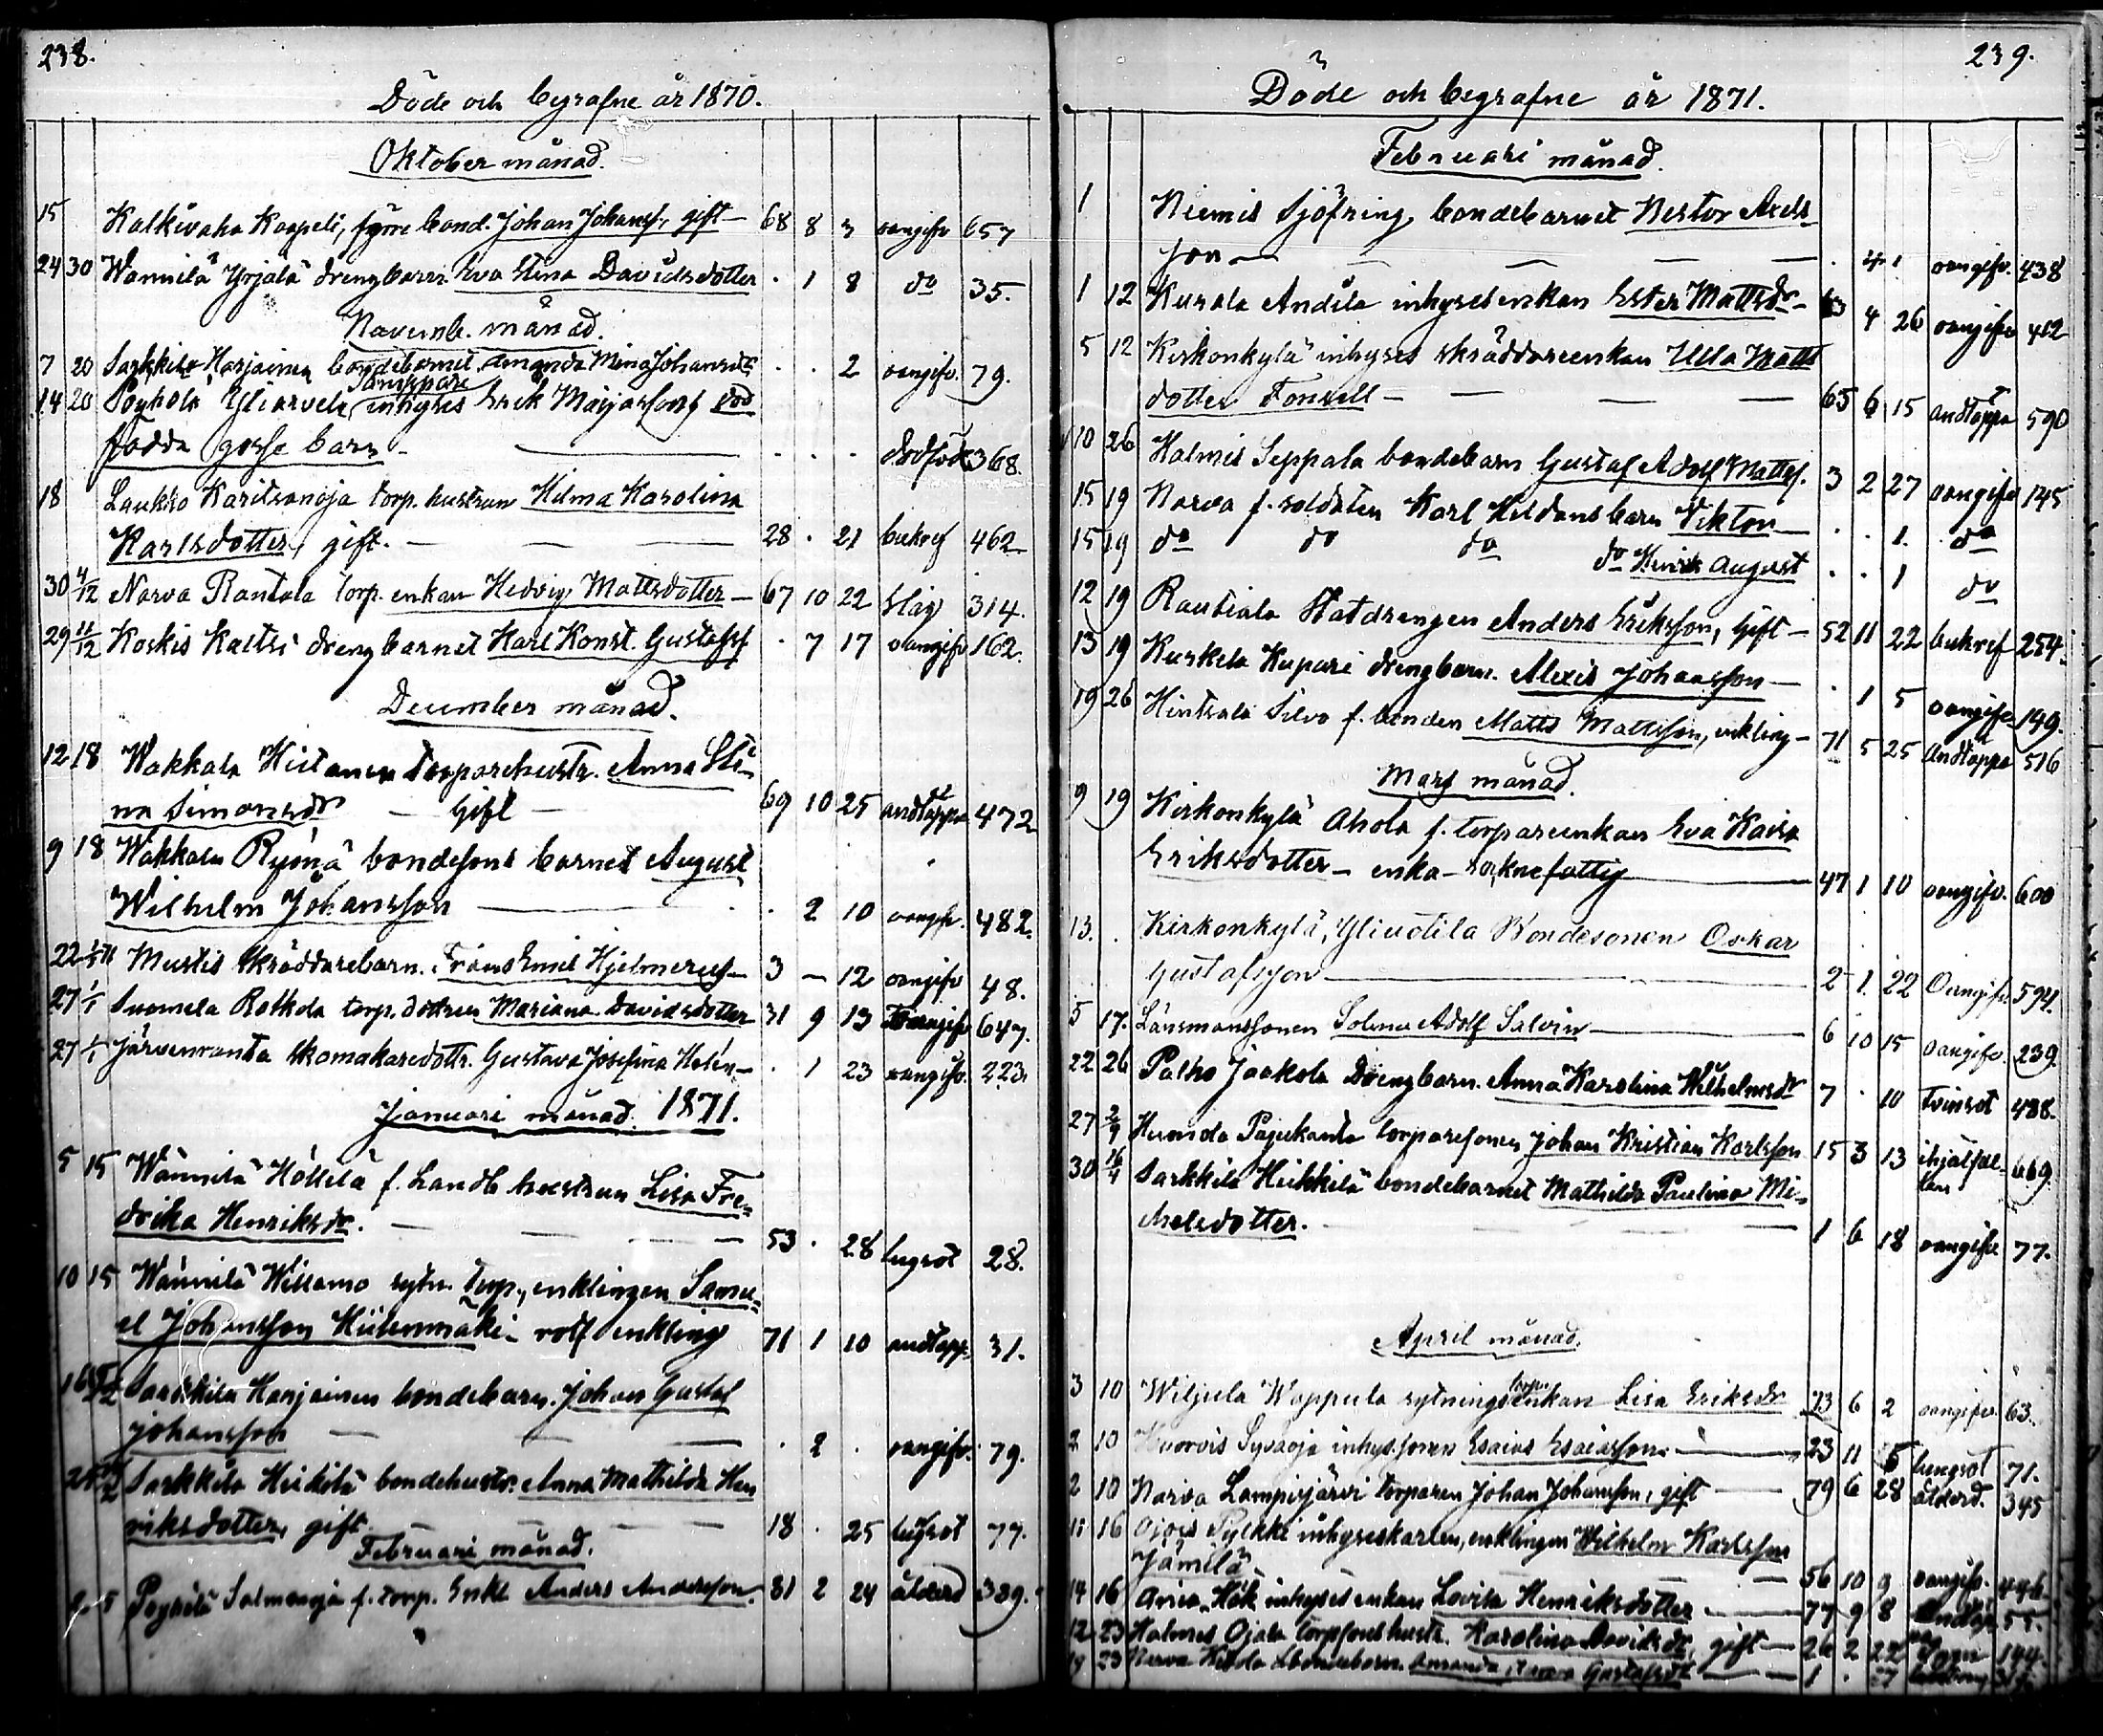 238.
Döde och begrafne år 1870.
Oktober månad.
15 Kalkivaha Kaapeli, förre bond. Johan Johanss. gift 68 8 3 oangifv 657
24 30 Wannilä Yrjälä drengbarn Eva Stina Davidsdotter . 1 8 do 35.
Novemb. månad.
7 20 Sarkkila Harjainen bondebarnet Amanda Mina Johansdr . . 2 oangifv. 79.
14 20 Poyhola Yliarvela inhyses Erik död
födda gosse barn . . . dödföd 368.
18 Laukko Karitsanoja torp. hustrun Hilma Karolina
Karlsdotter, gift. 28 . 21 462
30 4/12 Narva Rantala torp. enkan Hedvig Mattsdotter 67 10 22 Slag 314.
29 11/12 Koskis Kaltsi drengbarnet Karl Konst. Gustafss . 7 17 oangifv 162.
December månad.
12 18 Wakkala torparehustr. Anna Sti-
na Simonsdr Gift 69 10 25 andtäppa 472
9 18 Wakkala bondesons barnet August
Wilhelm Johansson . 2 10 oangifv. 482.
22 Mustis Skräddarebarn. Frans Emil 3 – 12 oangifv 48.
27 1/1 Suomela Rotkola torp. dottren Mariana Davidsdotter 31 9 13 oangifv 647.
27 1/1 Järvenranta Skomakaredottr. Gustava Josefina Helén . 1 23 oangifv. 223.
Januari månad. 1871.
5 15 Wännilä Höllilä f. Landb hustrun Lisa Fre-
drika Henriksdr. 53 . 28 lugsot 28.
10 15 Wännilä Willamo rytn. Torp., enklingen Samu-
el Johansson enkling 71 1 10 andtäpp. 31.
Sarkkila Harjainen bondebarn. Johan Gustaf
Johansson . 2 . oangifv. 79.
Sarkkila Heikkilä bondehustr. Anna Mathilda Hen
riksdotter, gift 18 . 25 lugsot 77.
Februari månad.
5 Salmenoja f. torp. Enkl Anders Andersson. 81 2 24 ålderd 389.
239.
Döde och begrafne år 1871.
Februari månad.
1 Niemis Sjöfring, bondebarnet Nestor Axels-
son . 4 1 oangifv. 438
1 12 Kurala Andila inhysesenkan Ester Mattsdr 63 4 26 oangifv 412
5 12 Kirkonkylä inhyses skräddareenkan Ulla Matts
dotter Fonsell 65 6 15 andtäppa 590
10 26 Halmis Seppala bondebarn Gustaf Adolf Mattss. 3 2 27 oangifv 145
15 19 Narva f. soldaten Karl Heldans barn Viktor . . 1. do
15 19 do do do do Henrik August . . 1 do
12 19 Rautiala Statdrengen Anders Eriksson, Gift 52 11 22 254.
13 19 Kuskela Kupari drengbarn. Alexis Johansson . 1 5 oangifv 149.
19 26 Hintsala Silvo f. bonden Matts Mattsson, enkling 71 5 25 Andtäppa 516
Mars månad.
9 19 Kirkonkylä Ahola f. torpareenkan Eva Kaisa
Eriksdotter enka socknefattig 47 1 10 oangifv. 600
13. . Kirkonkylä, Yliuotila Bondesonen Oskar
Gustafsson 2 1. 22 Oangifv. 594.
5 17. Länsmanssonen Adolf Salvin 6 10 15 oangifv. 239.
22 26 Palho Jaakola Drengbarn. Anna Karolina Wilhelmsdr 7 . 10 Tvinsot 488.
27 2/4 Huonda Pajukanta torparesonen Johan Kristian Karlsson 15 3 13 ihjälfal-
len 669.
30 16/4 Sarkkila Heikkilä bondebarnet Mathilda Paulina Mi-
chelsdotter. 1 6 18 oangifv 77.
April månad.
3 10 Wiljula Woppula rytnings torp. enkan Lisa Eriksdr 73 6 2 oangifv. 63.
2 10 inhys. sonen Esaias Esaiasson 23 11 5 lungsot 71.
2 10 Narva Lampisjärvi torparen Johan Johansson, gift 79 6 28 ålderd. 345
11 16 Ojois Pylkki inhyseskarlen, enklingen Wilhelm Karlsson
Jämilä 56 10 9 oangifv. 446
14 16 Hök inhysesenkan Lovisa Henriksdotter 77 9 8 55.
12 23 Halmes Ojala torpsonshustr. Karolina Davidsdr, gift 26 2 22 144.
23 Amanda Gustafsdr 1 . 27